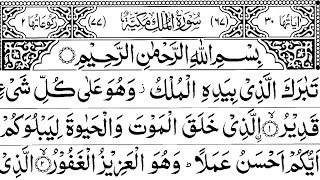 اٰیَاتُهَا ٣٠ (٦٧) سُوْرَةُ الْمُلْكِ مَكِّيَّةٌ (٧٧) رُكُوْعَاتُهَا ٢
بِسْمِ اللّٰهِ الرَّحْمٰنِ الرَّحِيْمِ
تَبٰرَكَ الَّذِیْ بِیَدِهِ الْمُلْكُ ز وَهُوَ عَلٰی كُلِّ شَیْءٍ
قَدِیْرُ ۙ﴿١﴾ الَّذِیْ خَلَقَ الْمَوْتَ وَالْحَیٰوةَ لِیَبْلُوَكُمْ
اَیُّكُمْ اَحْسَنُ عَمَلًا ؕ وَهُوَ الْعَزِیْزُ الْغَفُوْرُ ۙ﴿٢﴾ الَّذِیْ